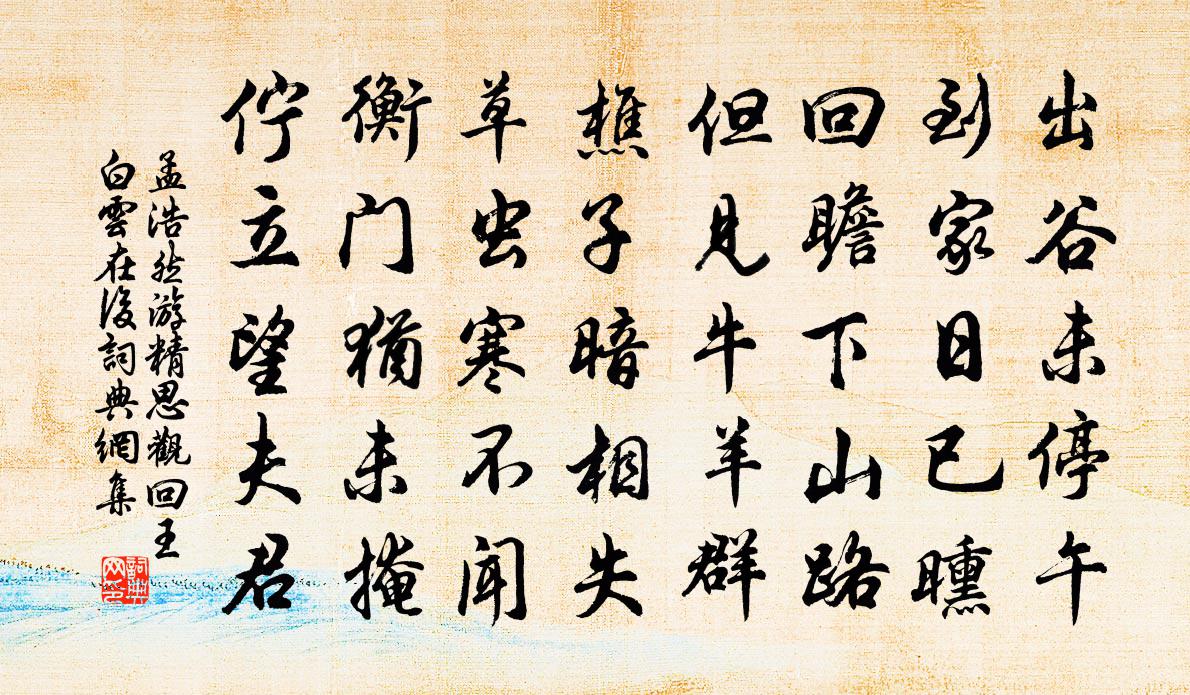 出谷未停午
到家日已曛
回瞻下山路
但见牛羊群
樵子暗相失
草虫寒不闻
衡门犹未掩
伫立望夫君
孟浩然游精思觀回王
白雲在後詞典網集